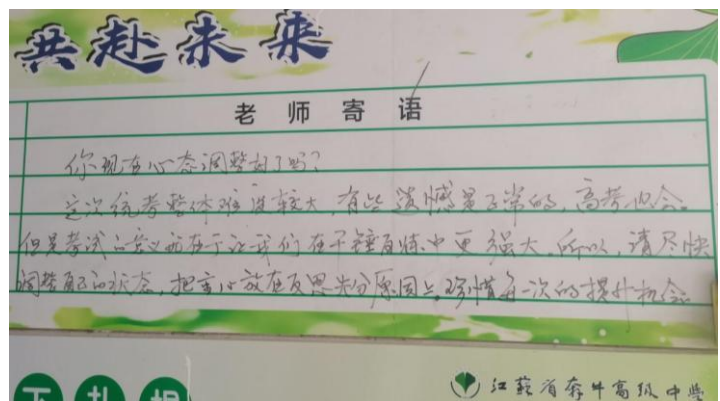 共赴未来
老师寄语
你现在心态调整好了吗?
这次统考整体难度较大,有些遗憾是正常的,高考也会。
但是考试的意义就在于让我们在千锤百炼中更强大。所以,请尽快
调整自己的状态,把重心放在反思失分原因上,珍惜每一次的提升机会。
下扎根
江苏省奔牛高级中学